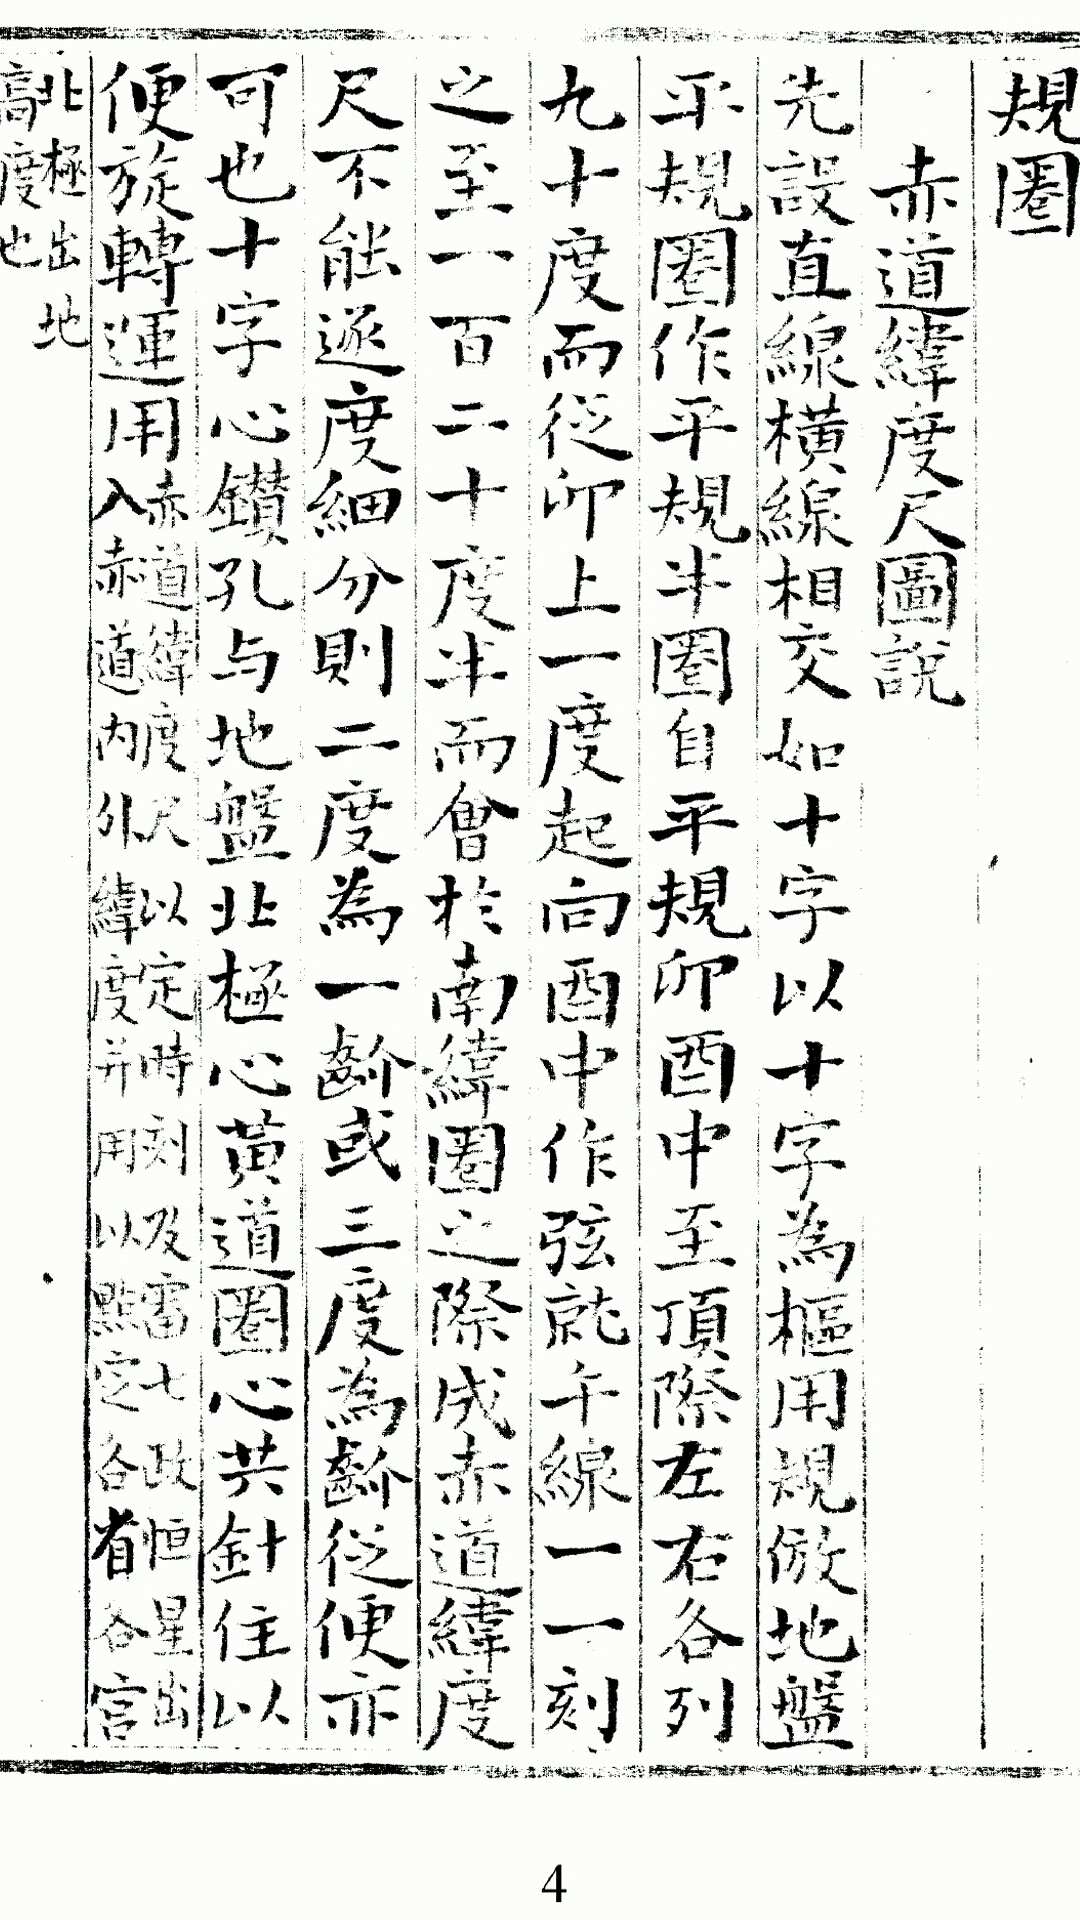 規圈
赤道緯度尺圖說
先設直線橫線相交如十字以十字為樞用規倣地盤
平規圈作平規半圈自平規卯酉中至頂際左右各列
九十度而從卯上一度起向酉中作弦就午線一一刻
之至一百二十度半而會於南緯圈之際成赤道緯度
尺不能逐度細分則二度為一齡或三度為齡從便亦
可也十字心鑚孔与地盤北極心黃道圈心共針住以
便旋轉運用赤道緯度尺以定時刻及畱七政恒星出
入赤道內外緯度并用以㸃定各省各宮
北極出地
高度也
4